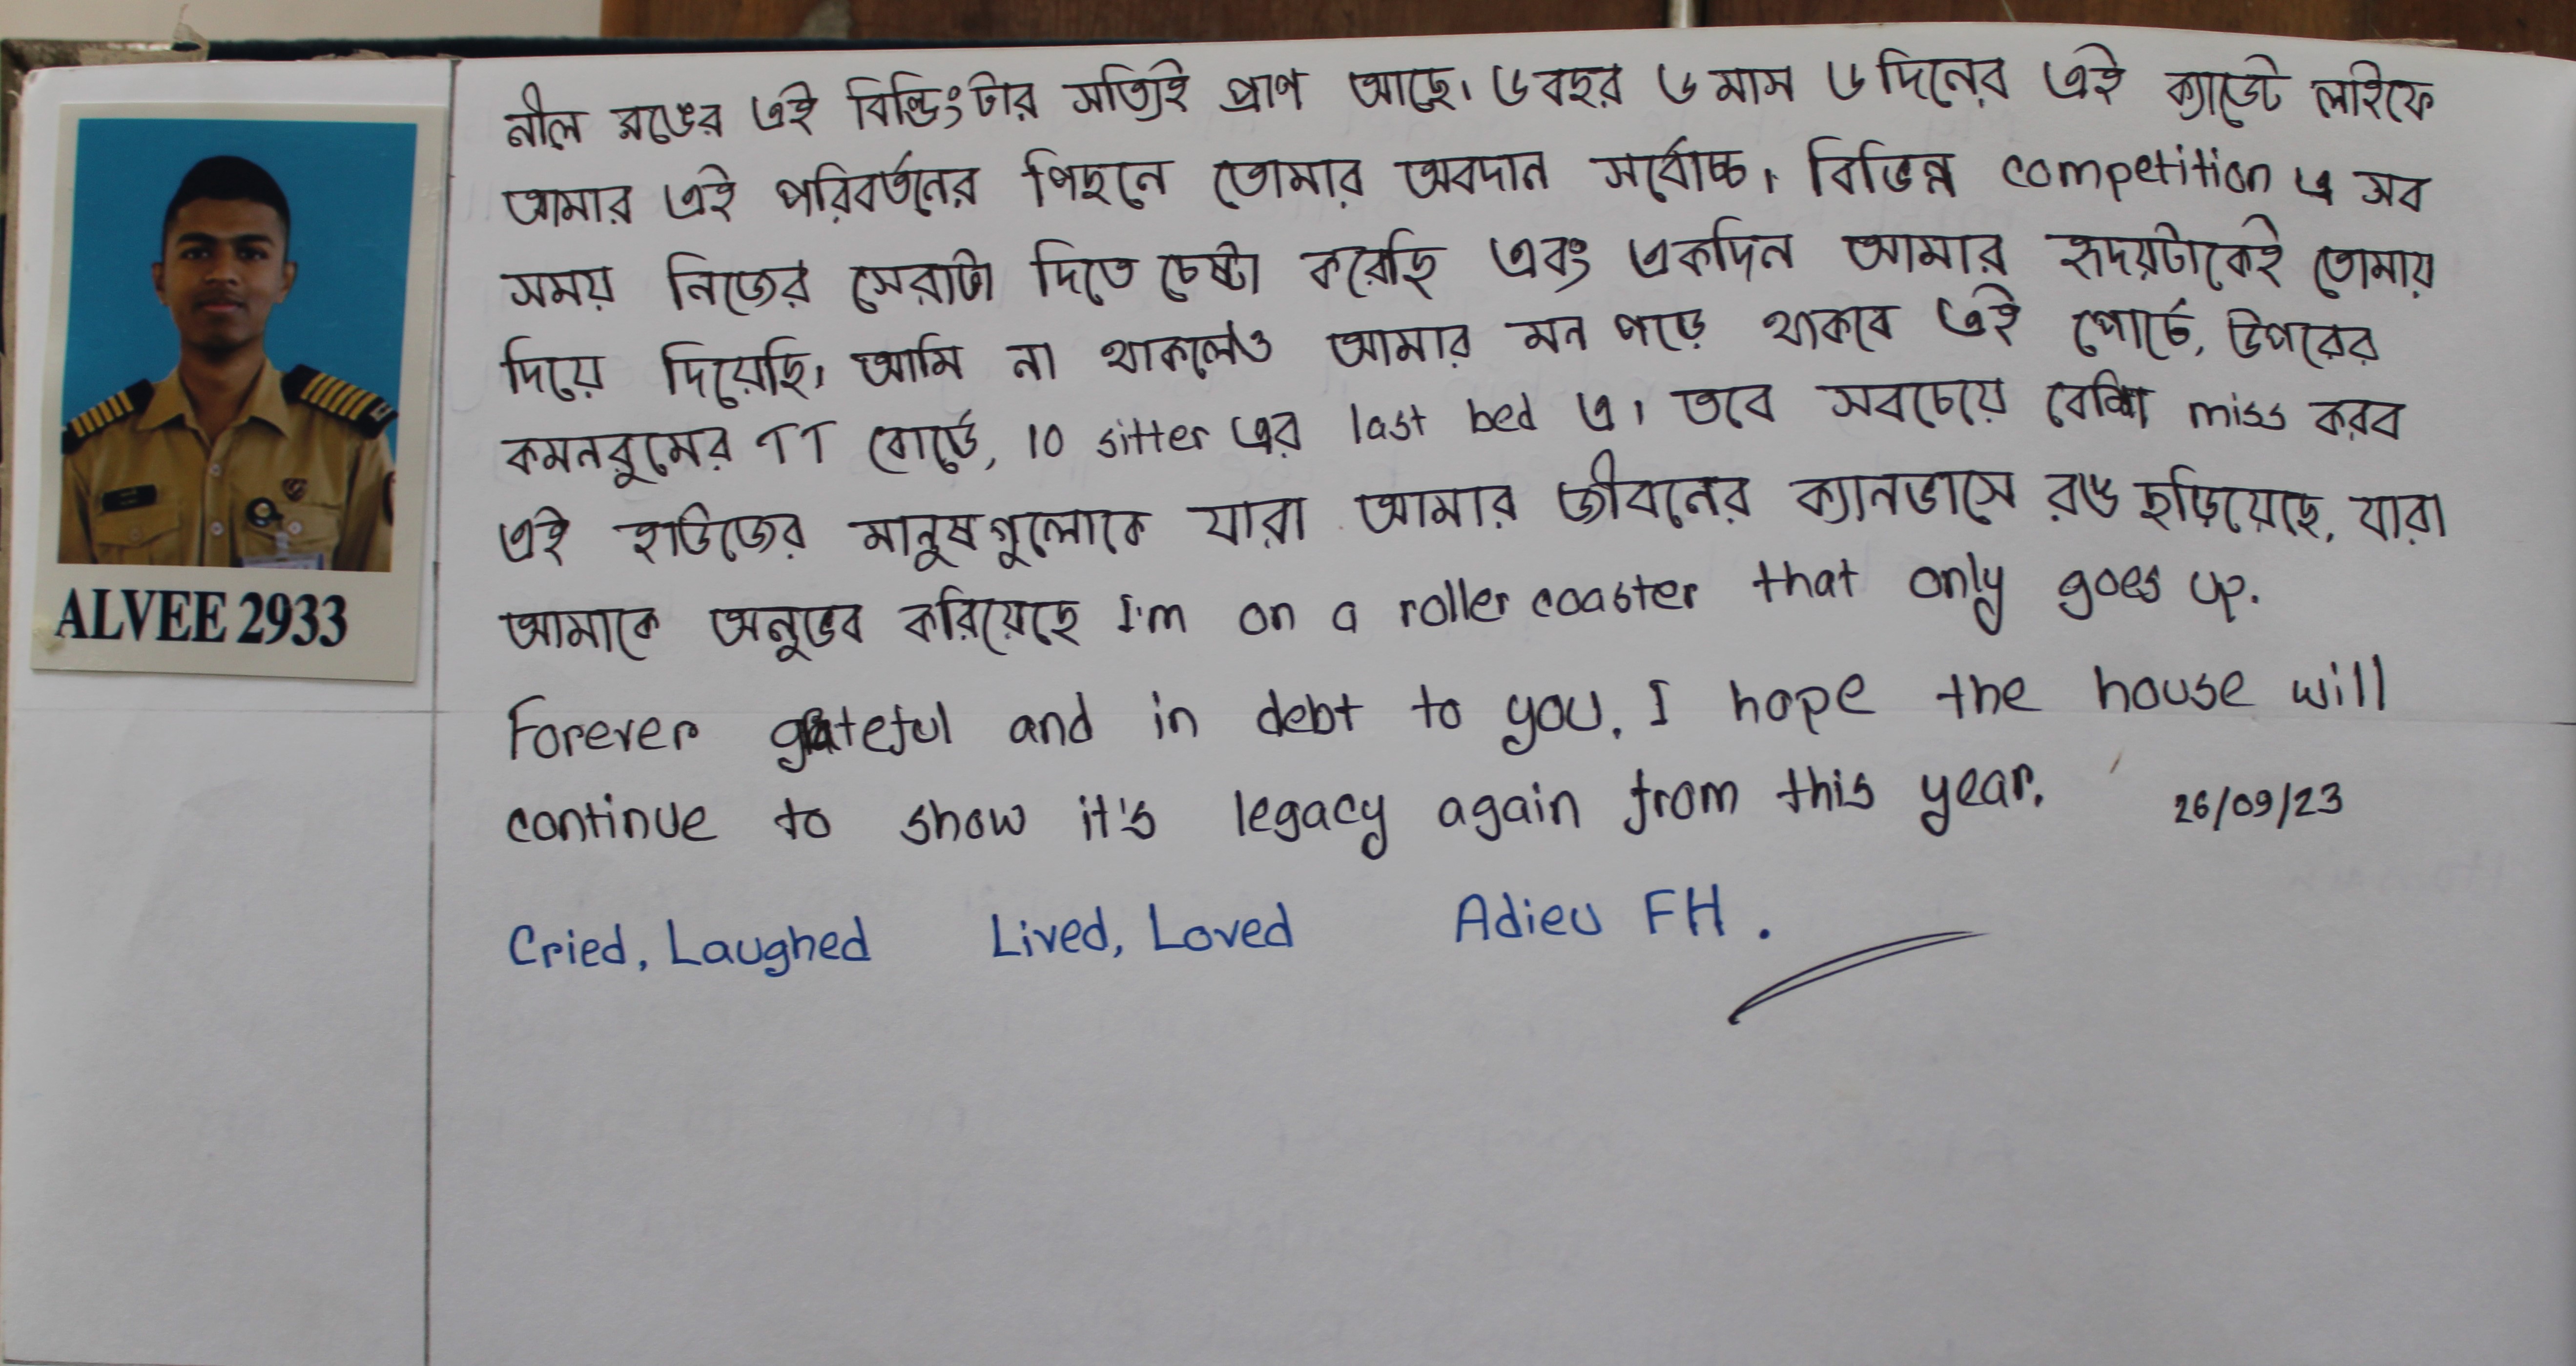 নীল রঙের এই বিল্ডিংটার সত্যিই প্রাণ আছে। ৬ বছর ৬ মাস ৬ দিনের এই ক্যাডেট লাইফে
আমার এই পরিবর্তনের পিছনে তোমার অবদান সর্বোচ্চ। বিভিন্ন competition এ সব
সময় নিজের সেরাটা দিতে চেষ্টা করেছি এবং একদিন আমার হৃদয়টাকেই তোমায়
দিয়ে দিয়েছি। আমি না থাকলেও আমার মন পড়ে থাকবে এই পোর্চে, উপরের
কমনরুমের TT বোর্ডে, 10 sitter এর last bed এ। তবে সবচেয়ে বেশি miss করব
এই হাউজের মানুষগুলোকে যারা আমার জীবনের ক্যানভাসে রঙ ছড়িয়েছে, যারা
আমাকে অনুভব করিয়েছে I'm on a roller coaster that only goes up.
Forever grateful and in debt to you. I hope the house will
continue to show it's legacy again from this year. 26/09/23
Cried, Laughed Lived, Loved Adieu FH.
ALVEE 2933